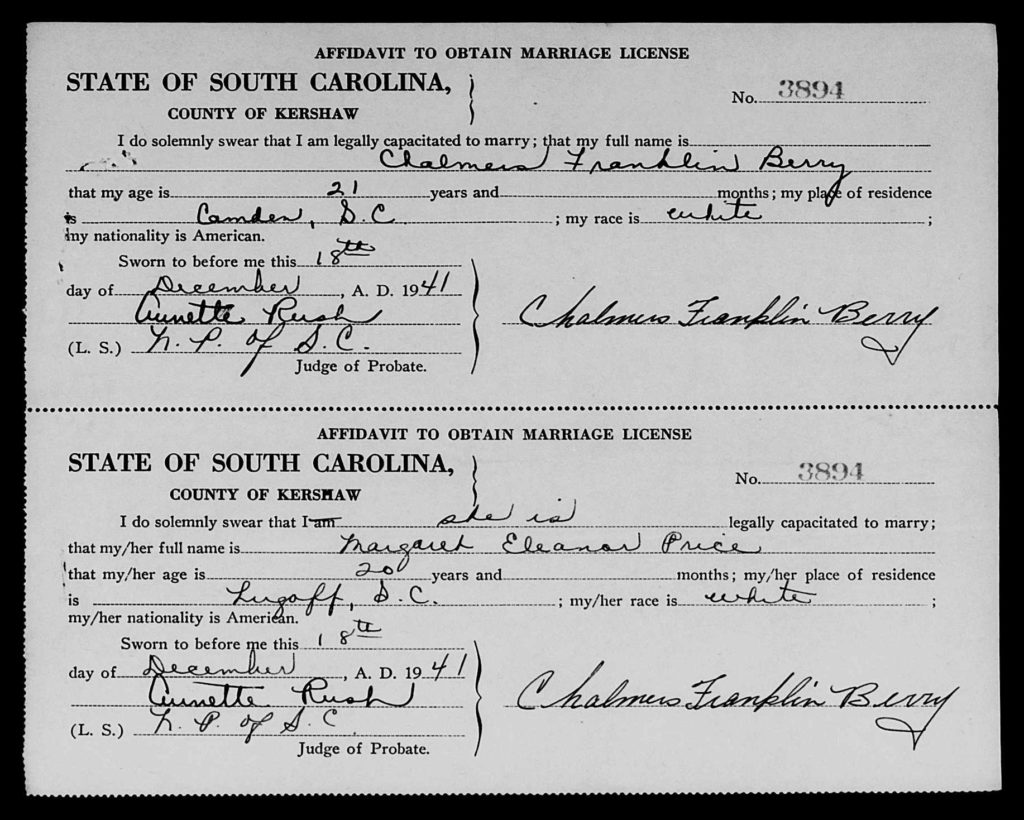 AFFIDAVIT TO OBTAIN MARRIAGE LICENSE
STATE OF SOUTH CAROLINA,
No. 3894
COUNTY OF KERSHAW
I do solemnly swear that I am legally capacitated to marry; that my full name is
Chalmers Franklin Berry
that my age is 21 years and months; my place of residence
is Camden, S.C. ; my race is white ;
my nationality is American.
Sworn to before me this 18th
day of December, A. D. 1941
Annette Rush
Chalmers Franklin Berry
(L. S.) N. P. of S. C.
Judge of Probate.
AFFIDAVIT TO OBTAIN MARRIAGE LICENSE
STATE OF SOUTH CAROLINA,
No. 3894
COUNTY OF KERSHAW
I do solemnly swear that I am she is legally capacitated to marry;
that my/her full name is Margaret Eleanor Price
that my/her age is 20 years and months; my/her place of residence
is Lugoff, S.C. ; my/her race is white ;
my/her nationality is American.
Sworn to before me this 18th
day of December, A. D. 1941
Annette Rush
Chalmers Franklin Berry
(L. S.) N. P. of S. C.
Judge of Probate.